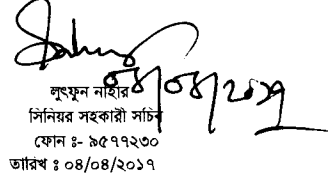 ০৪/০৪/২০১৭
লুৎফুন নাহার
সিনিয়র সহকারী সচিব
ফোন ঃ- ৯৫৭৭২৩০
তারিখ ঃ ০৪/০৪/২০১৭